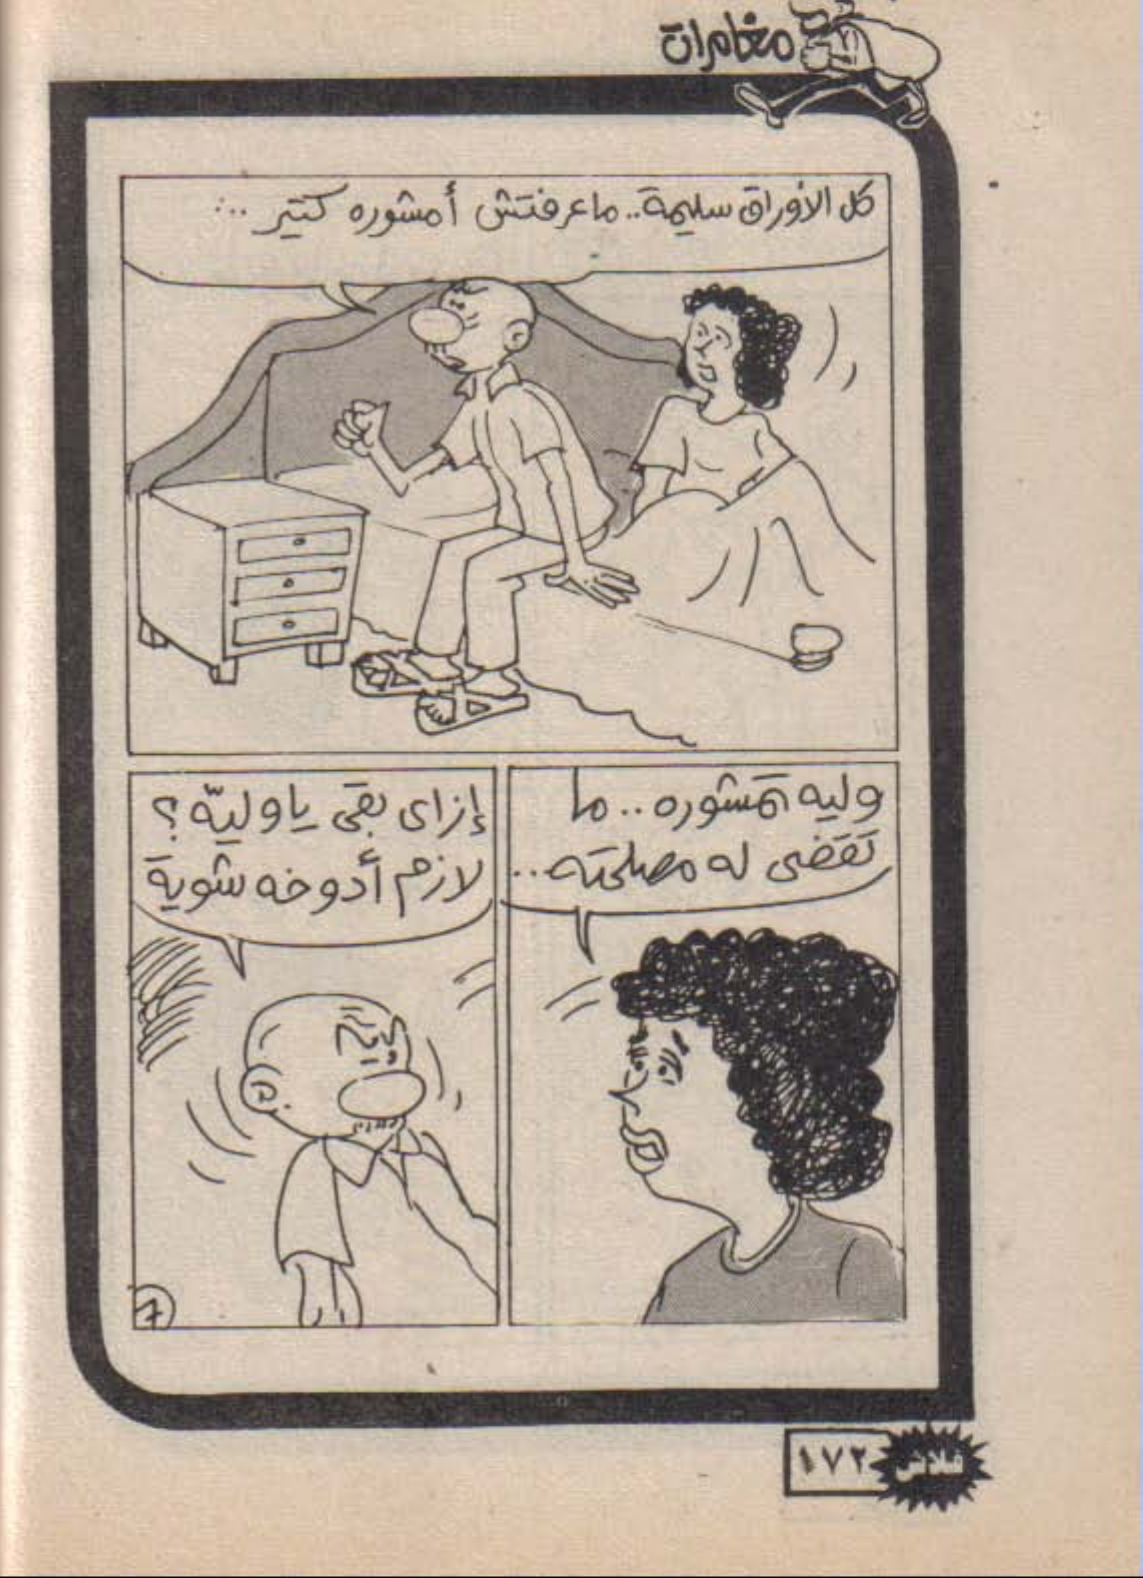 مغامرات
كل الأوراق سليمة.. ماعرفتش أمشوره كتير ...
وليه تمشوره.. ما
تقضى له مصلحته...
إزاى بقى ياوليّه؟
لازم أدوخه شوية
٦
فلاش
١٧٢